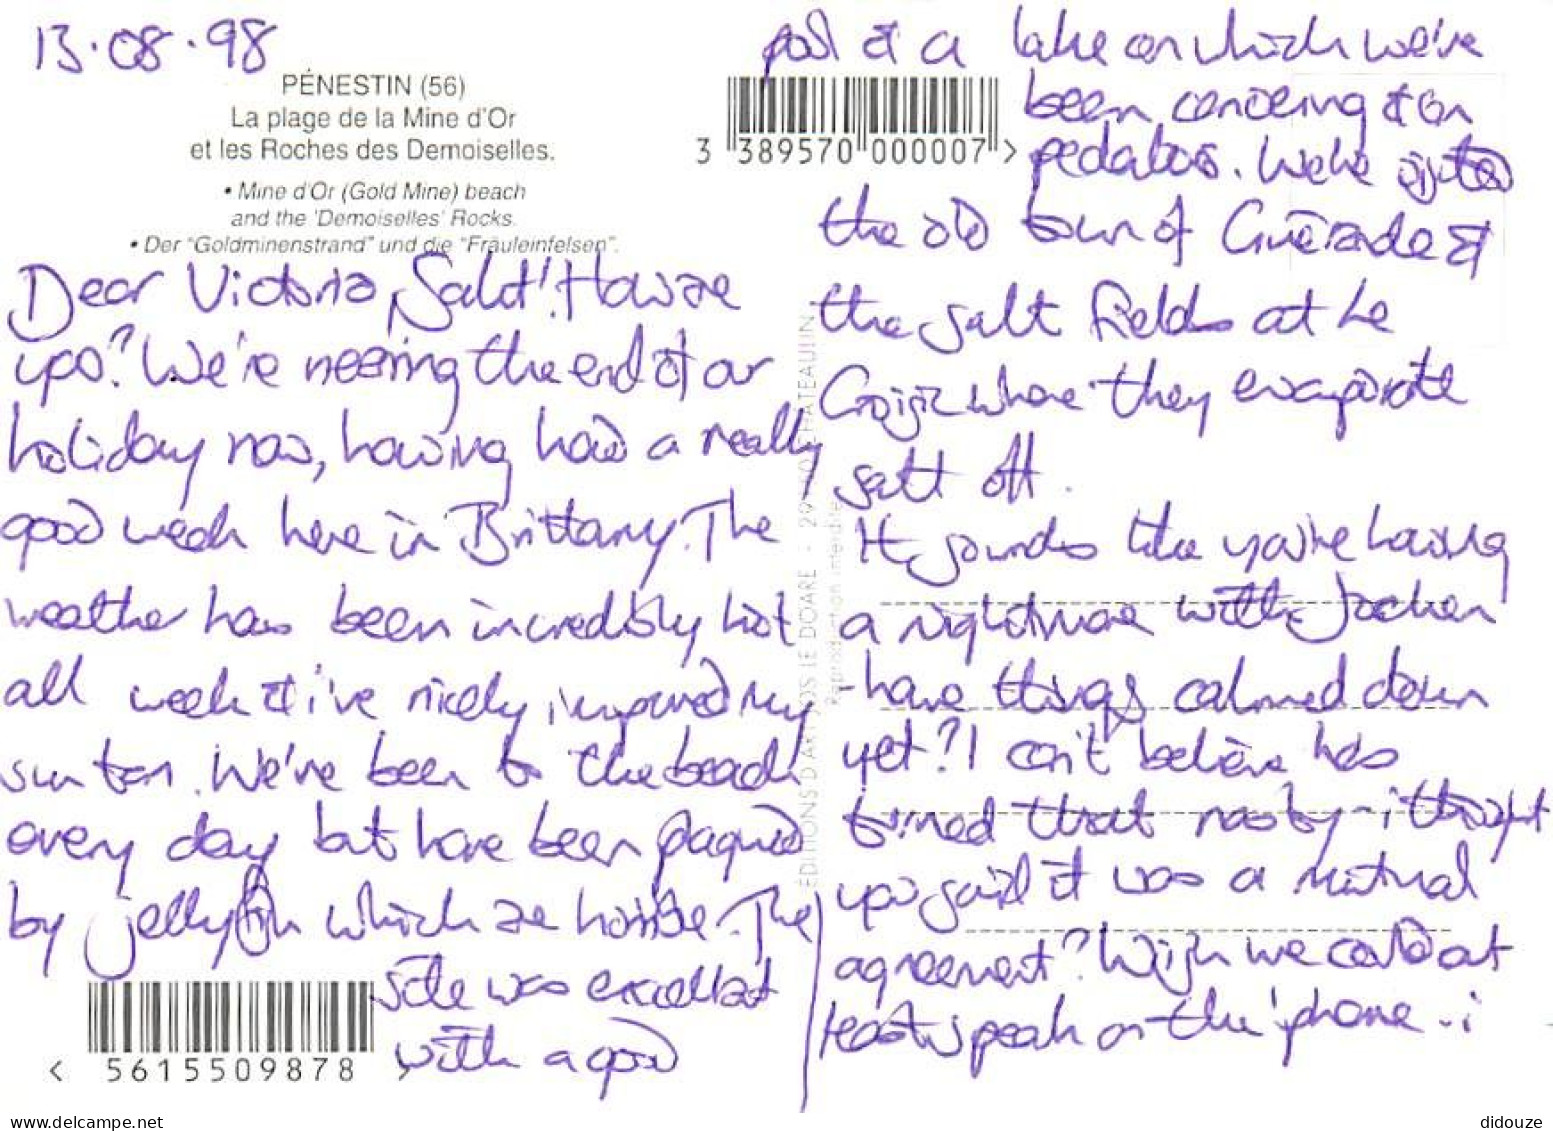 13.08.98
PÉNESTIN (56)
La plage de la Mine d'Or
et les Roches des Demoiselles.
• Mine d'Or (Gold Mine) beach
and the 'Demoiselles' Rocks.
• Der "Goldminenstrand" und die "Fräuleinfelsen".
Dear Victoria, Salut! How are
you? We're nearing the end of our
holiday now, having had a really
good week here in Brittany. The
weather has been incredibly hot
all week & i've nicely improved my
sun tan. We've been to the beach
every day but have been plagued
by jellyfish which are horrible. The
site was excellent
with a good
< 5615509878 >
ÉDITIONS D'ART JOS LE DOARE - 29 CHATEAULIN
Reproduction interdite
pool & a lake on which we've
3 389570 000007 >
been canoeing & on
pedalos. We've
the old town of Guérande &
the salt fields at Le
Croisic where they evaporate
salt off.
It sounds like you're having
a nightmare with Jochen
- have things calmed down
yet? I can't believe he's
turned that nasty - i thought
you said it was a mutual
agreement? Wish we could at
least speak on the 'phone - i
delcampe.net
didouze